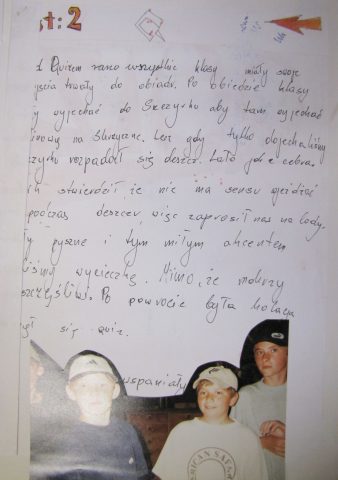 st: 2
1 Quizem rano wszystkie klasy miały swoje
jęcia trwały do obiadu. Po obiedzie klasy
y wyjechać do Szczyrku aby tam wyjechać
inową na Skrzyczne. Lecz gdy tylko dojechaliśmy
czyrku rozpadał się deszcz. Lało jak z cebra.
ch stwierdził, że nie ma sensu wjeżdżać
podczas deszczu więc zaprosił nas na lody.
ły pyszne i tym miłym akcentem
liśmy wycieczkę. Mimo, że mokrzy
szczęśliwi. Po powrocie była kolacja
ył się quiz.
wspaniały
RICAN SAFA